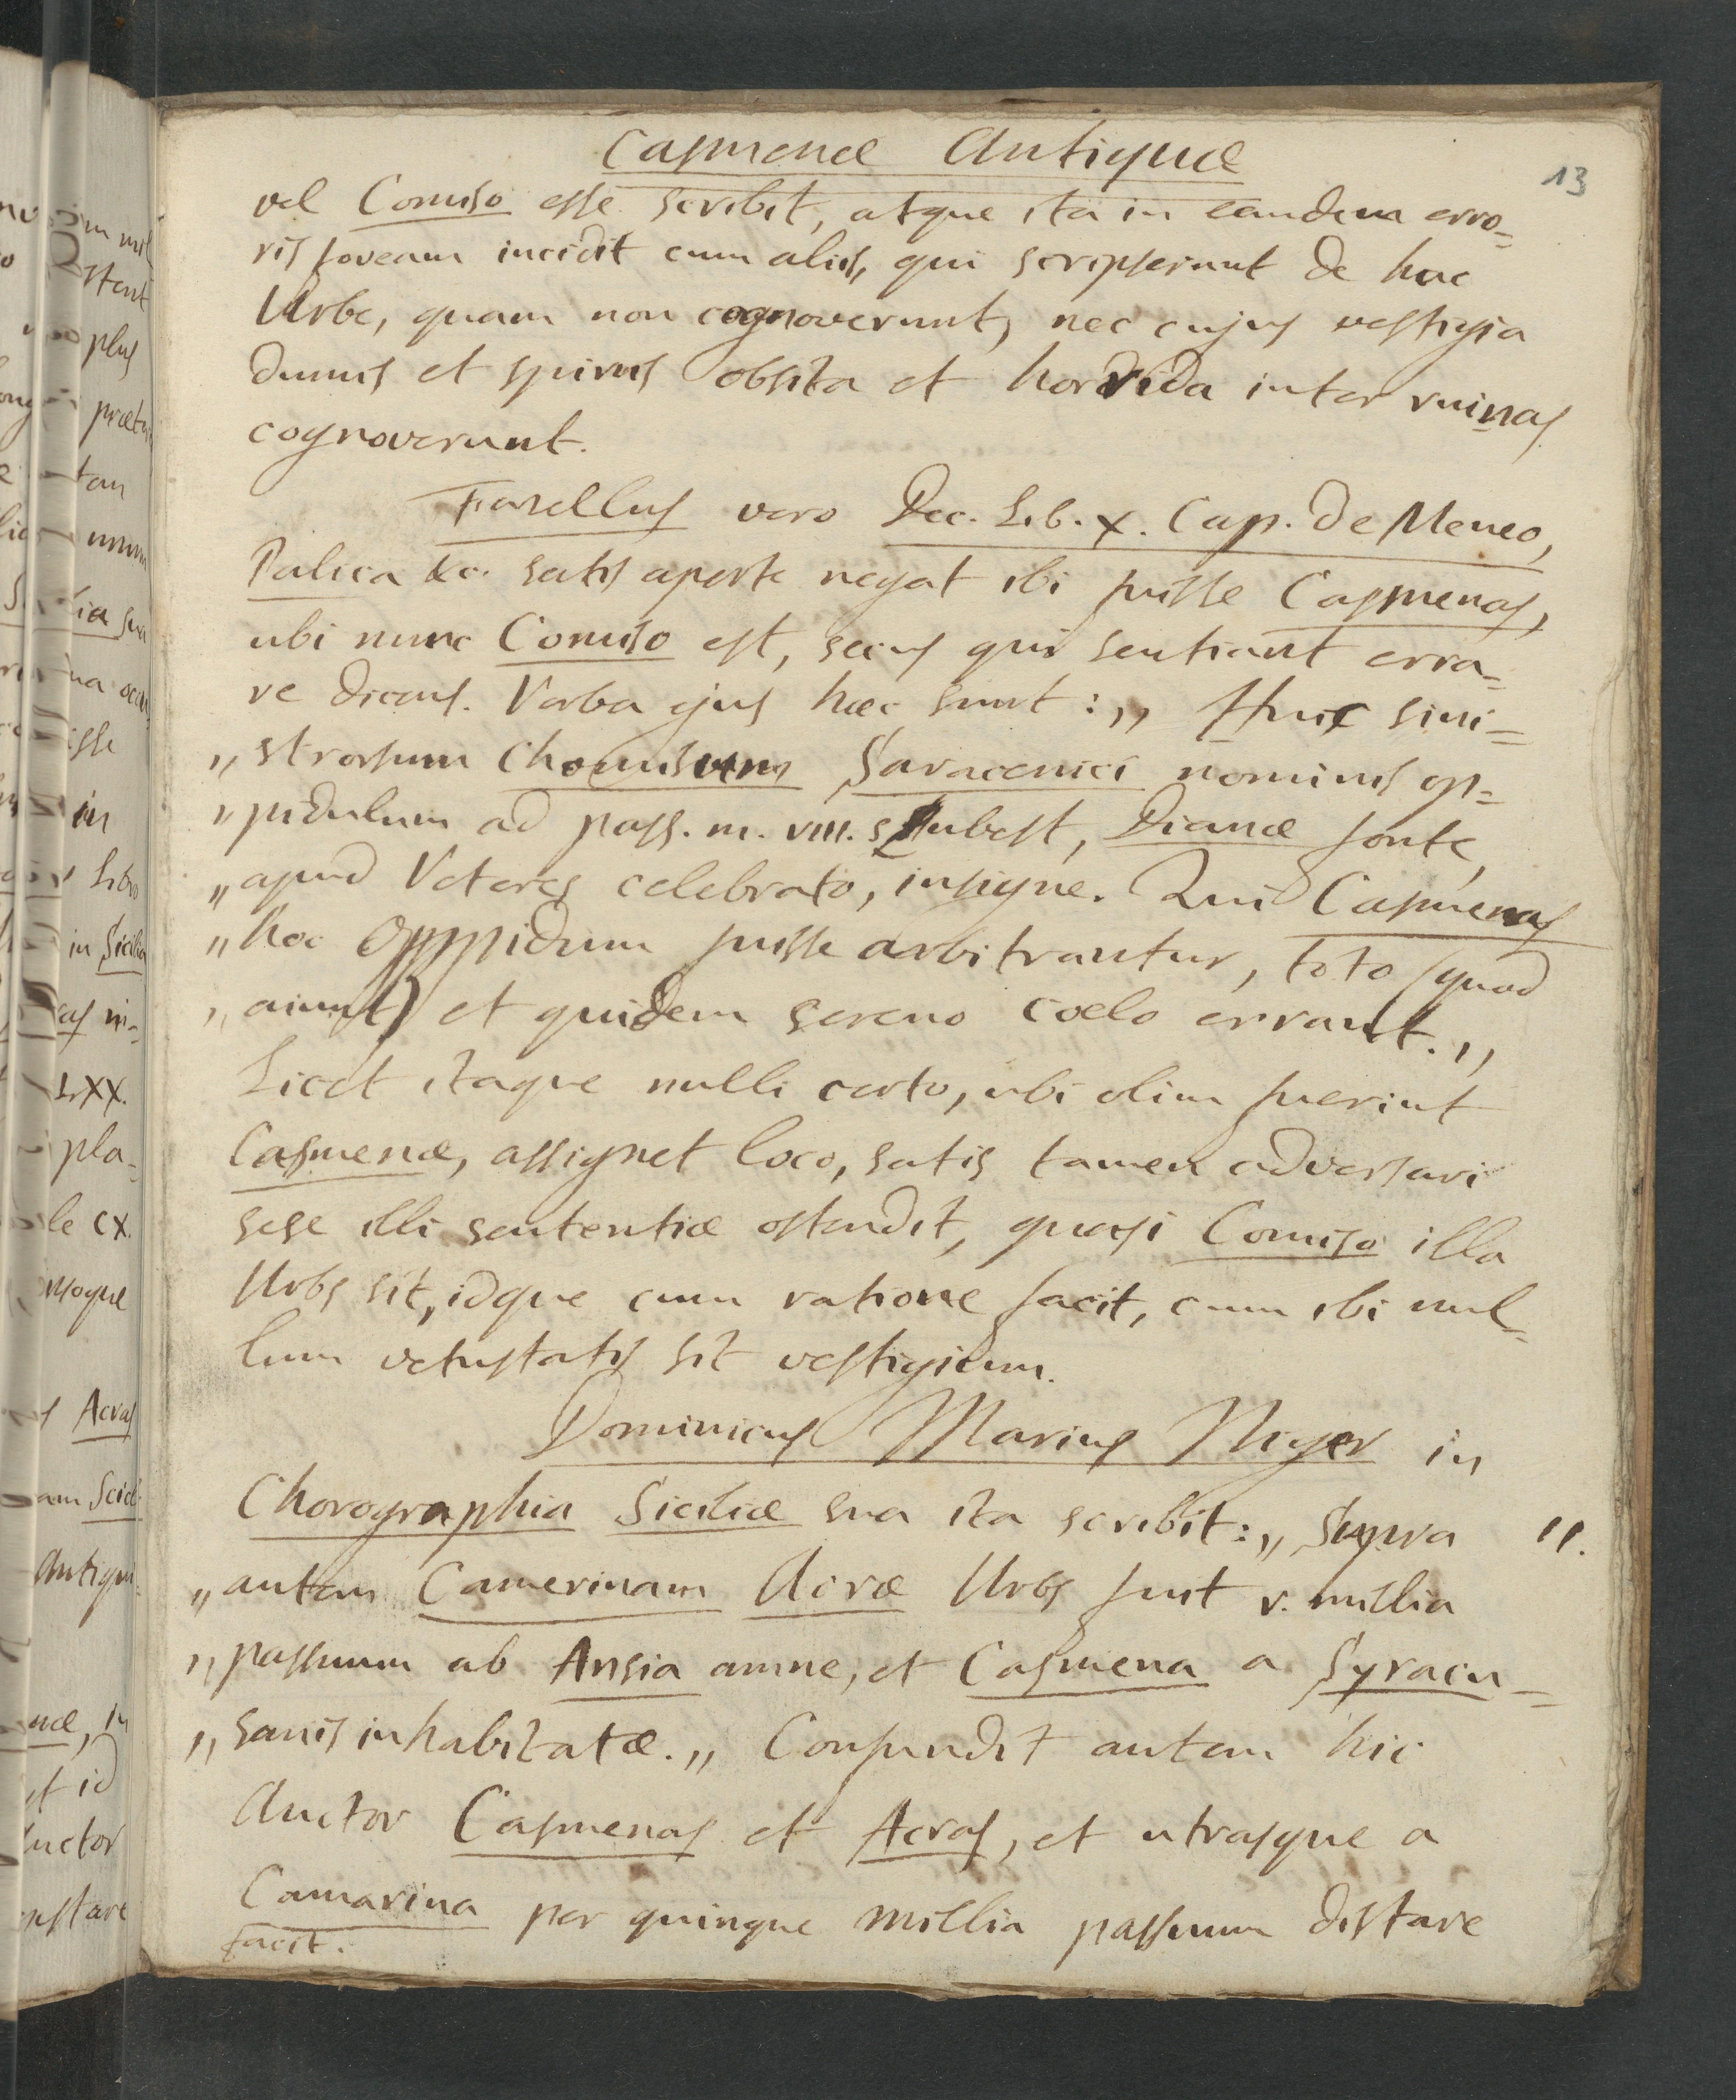 Casmenæ Antiquæ
13
vel Comiso esse scribit, atque ita in eandem erro=
ris foveam incidit cum aliis, qui scripserunt de hac
Urbe, quam non cognoverunt, nec cujus vestigia
dumis et spinis obsita et horrida inter ruinas
cognoverunt.
Fazellus vero Dec. Lib. X. Cap. de Meneo,
Palica &c. satis aperte negat ibi fuisse Casmenas,
ubi nunc Comiso est, secus qui sentiant erra=
re dicens. Verba ejus hæc sunt: „ Huic sini=
„ strorsum Chomisum Saracenici nominis op=
„ pidulum ad pass. m. VIII. subest, Dianæ fonte,
„ apud Veteres celebrato, insigne. Qui Casmenas
„ hoc Oppidum fuisse arbitrantur, toto (quod
„ aiunt) et quidem sereno coelo errant. „
Licet itaque nulli certo, ubi olim fuerint
Casmenæ, assignet loco, satis tamen adversari
sese illi sententiæ ostendit, quasi Comiso illa
Urbs sit, idque cum ratione facit, cum ibi nul=
lum vetustatis sit vestigium.
Dominicus Marius Niger in
Chorographia Siciliæ sua ita scribit: „ Supra „.
„ autem Camerinam Acræ Urbs fuit v. millia
„ passuum ab Ansia amne, et Casmena a Syracu=
„ sanis inhabitatæ. „ Confundit autem hic
Auctor Casmenas et Acras, et utrasque a
Camarina per quinque millia passuum distare
facit.